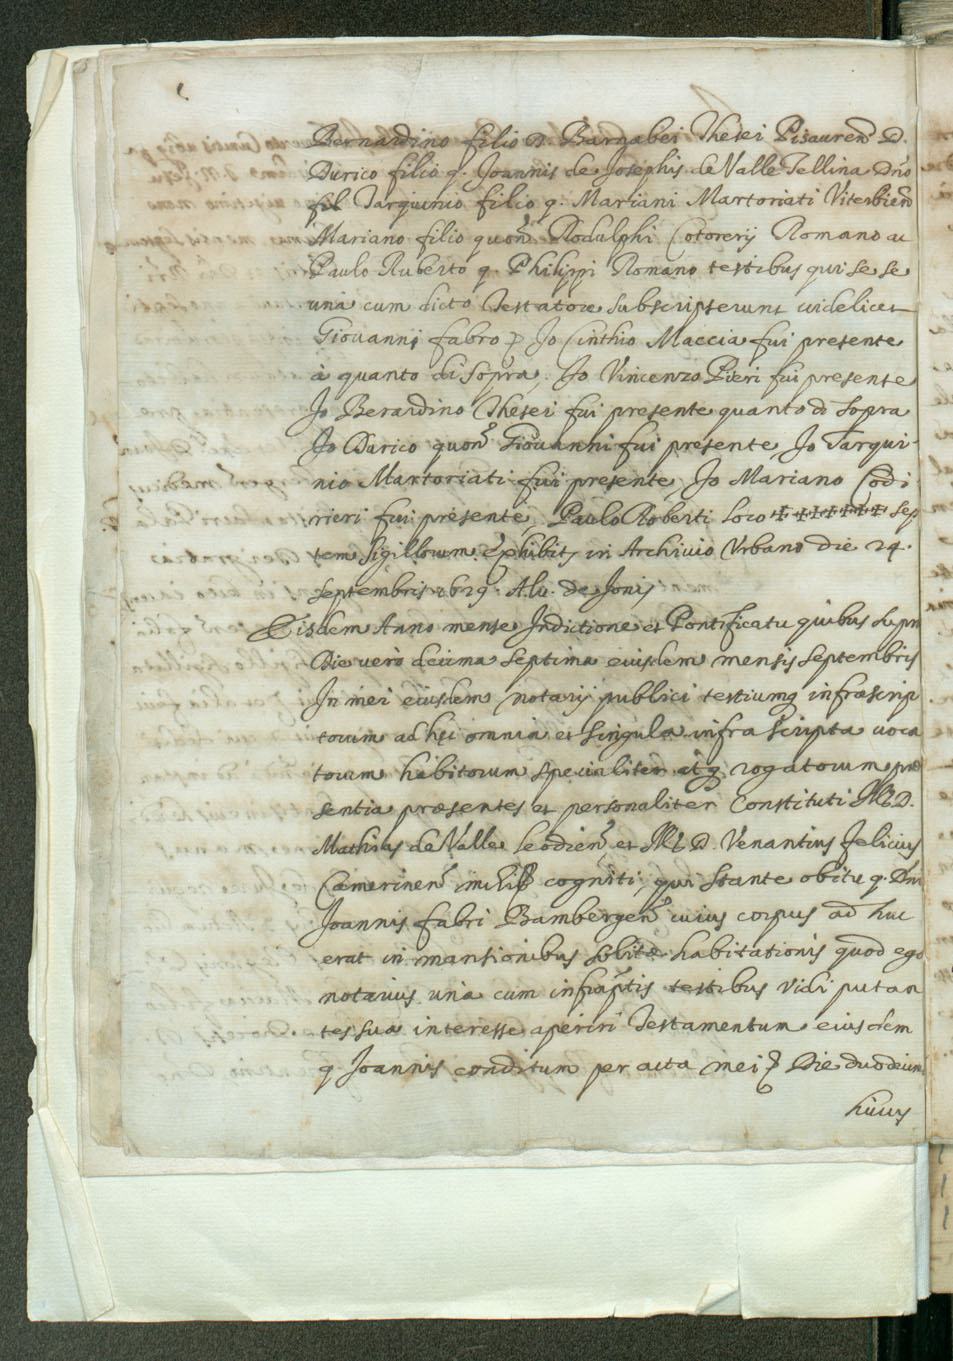 Bernardino filio D. Barnabei Thesei Pisauren D.
Durico filio q. Joannis de Josephis de Valle Tellina Dno
fil Tarquinio filio q. Mariani Martoriati Viterbien
Mariano filio quon Rodulphi Cotorerij Romano ac
Paulo Ruberto q. Philippi Romano testibus qui se se
una cum dicto Testatore subscripserunt videlicet
Giovanni fabro p Jo Cinthio Maccia fui presente
à quanto di sopra, Jo Vincenzo Pieri fui presente
Jo Berardino Thesei fui presente quanto di sopra
Jo Darico quon Giouanni fui presente, Jo Tarqui-
nio Martoriati fui presente, Jo Mariano Codi
rieri fui presente, Paulo Roberti Loco +++++++ sep
tem sigillorum exhibit in Archivio Urbano die 24.
septembris 1629. Alu. de Jonis
Eisdem Anno mense Indictione et Pontificatu quibus supra
Die vero decima septima eiusdem mensis septembris
In mei eiusdem notarij publici testiumq infrascrip
torum ad hec omnia et singula infra scripta uoca
torum habitorum specialiter atq rogatorum pre
sentia præsentes et personaliter Constituti Ill. D.
Mathias de Valle Leodien et Ill. D. Venantius felicius
Camerinen mihi cogniti, qui stante obitu q. Dni
Joannis fabri Bambergen cuius corpus ad huc
erat in mansionibus solite habitationis quod ego
notarius una cum infraptis testibus vidi putan
tes sua interesse aperiri Testamentum eiusdem
q Joannis conditum per acta mei Die duodecima
huius